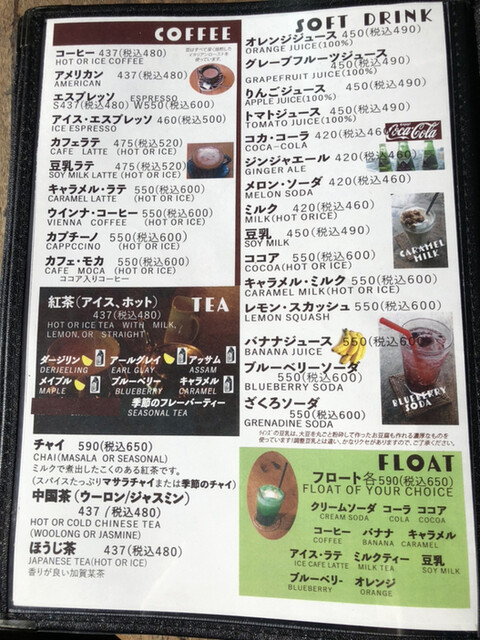 COFFEE
コーヒー 437(税込480)
HOT OR ICE COFFEE
アメリカン 437(税込480)
AMERICAN
エスプレッソ ESPRESSO
S437(税込480) W550(税込600)
アイス・エスプレッソ 460(税込500)
ICE ESPRESSO
カフェラテ 475(税込520)
CAFE LATTE (HOT OR ICE)
豆乳ラテ 475(税込520)
SOY MILK LATTE (HOT OR ICE)
キャラメル・ラテ 550(税込600)
CARAMEL LATTE (HOT OR ICE)
ウインナ・コーヒー 550(税込600)
VIENNA COFFEE (HOT OR ICE)
カプチーノ 550(税込600)
CAPPCCINO (HOT OR ICE)
カフェ・モカ 550(税込600)
CAFE MOCA (HOT OR ICE)
ココア入りコーヒー
紅茶(アイス、ホット) TEA
437(税込480)
HOT OR ICE TEA WITH MILK,
LEMON, OR STRAIGHT
ダージリン アールグレイ アッサム
DERJEELING EARL GLAY ASSAM
メイプル ブルーベリー キャラメル
MAPLE BLUEBERRY CARAMEL
季節のフレーバーティー
SEASONAL TEA
チャイ 590(税込650)
CHAI(MASALA OR SEASONAL)
ミルクで煮出したこくのある紅茶です。
(スパイスたっぷりマサラチャイまたは季節のチャイ)
中国茶(ウーロン/ジャスミン)
437 (税込480)
HOT OR COLD CHINESE TEA
(WOOLONG OR JASMINE)
ほうじ茶 437(税込480)
JAPANESE TEA(HOT OR ICE)
香りが良い加賀某茶
SOFT DRINK
オレンジジュース 450(税込490)
ORANGE JUICE(100%)
グレープフルーツジュース
450(税込490)
GRAPEFRUIT JUICE(100%)
りんごジュース 450(税込490)
APPLE JUICE(100%)
トマトジュース 450(税込490)
TOMATO JUICE(100%)
コカ・コーラ 420(税込460)
COCA-COLA
Coca-Cola
ジンジャエール 420(税込460)
GINGER ALE
メロン・ソーダ 420(税込460)
MELON SODA
ミルク 420(税込460)
MILK(HOT ORICE)
豆乳 450(税込490)
SOY MILK
ココア 550(税込600)
COCOA(HOT OR ICE)
CARAMEL
MILK
キャラメル・ミルク 550(税込600)
CARAMEL MILK(HOT OR ICE)
レモン・スカッシュ 550(税込600)
LEMON SQUASH
バナナジュース 550(税込600)
BANANA JUICE
ブルーベリーソーダ
550(税込600)
BLUEBERRY SODA
ざくろソーダ
550(税込600)
GRENADINE SODA
BLUEBERRY
SODA
FLOAT
フロート各590(税込650)
FLOAT OF YOUR CHOICE
クリームソーダ コーラ ココア
CREAM SODA COLA COCOA
コーヒー バナナ キャラメル
COFFEE BANANA CARAMEL
アイス・ラテ ミルクティー 豆乳
ICE CAFE LATTE MILK TEA SOY MILK
ブルーベリー オレンジ
BLUEBERRY ORANGE